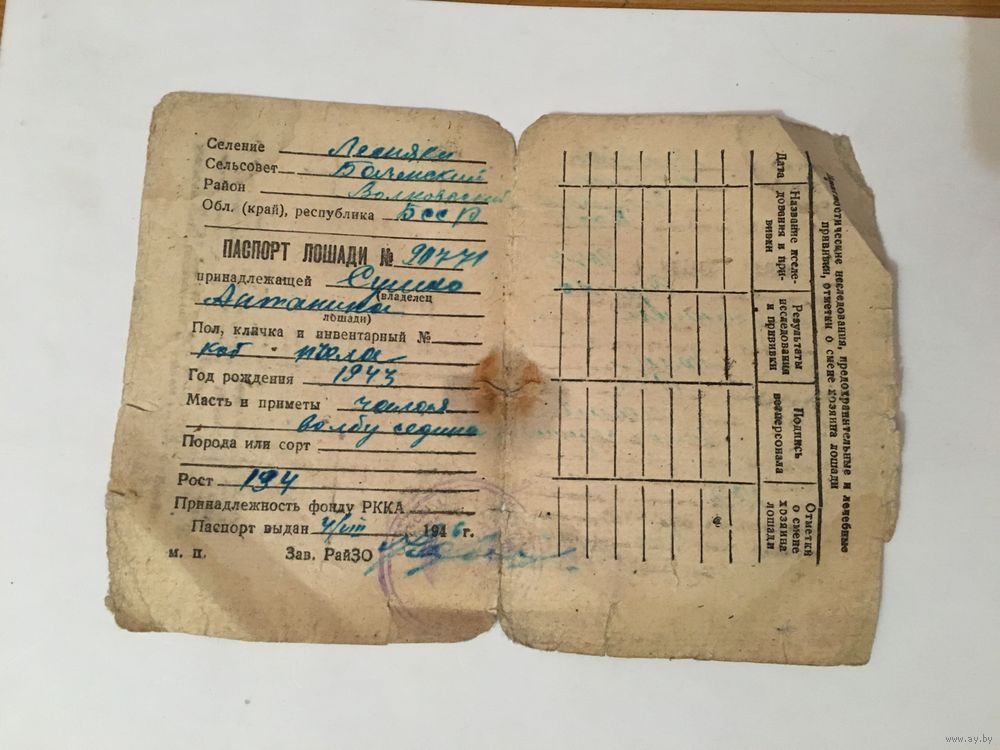 Селение Лесняки
Сельсовет
Район
Обл. (край), республика БССР
ПАСПОРТ ЛОШАДИ № 90771
принадлежащей Сушко
(владелец
лошади)
Пол, кличка и инвентарный №
коб
Год рождения 1943
Масть и приметы чалая
во лбу седина
Порода или сорт
Рост 194
Принадлежность фонду РККА
Паспорт выдан 4/VIII 1946 г.
м. п. Зав. РайЗО
исследования, предохранительные и лечебные
прививки, отметки о смене хозяина лошади
Дата
Название иссле-
дования и при-
вивки
Результаты
исследования
и прививки
Подпись
ветперсонала
Отметки
о смене
хозяина
лошади
www.ay.by